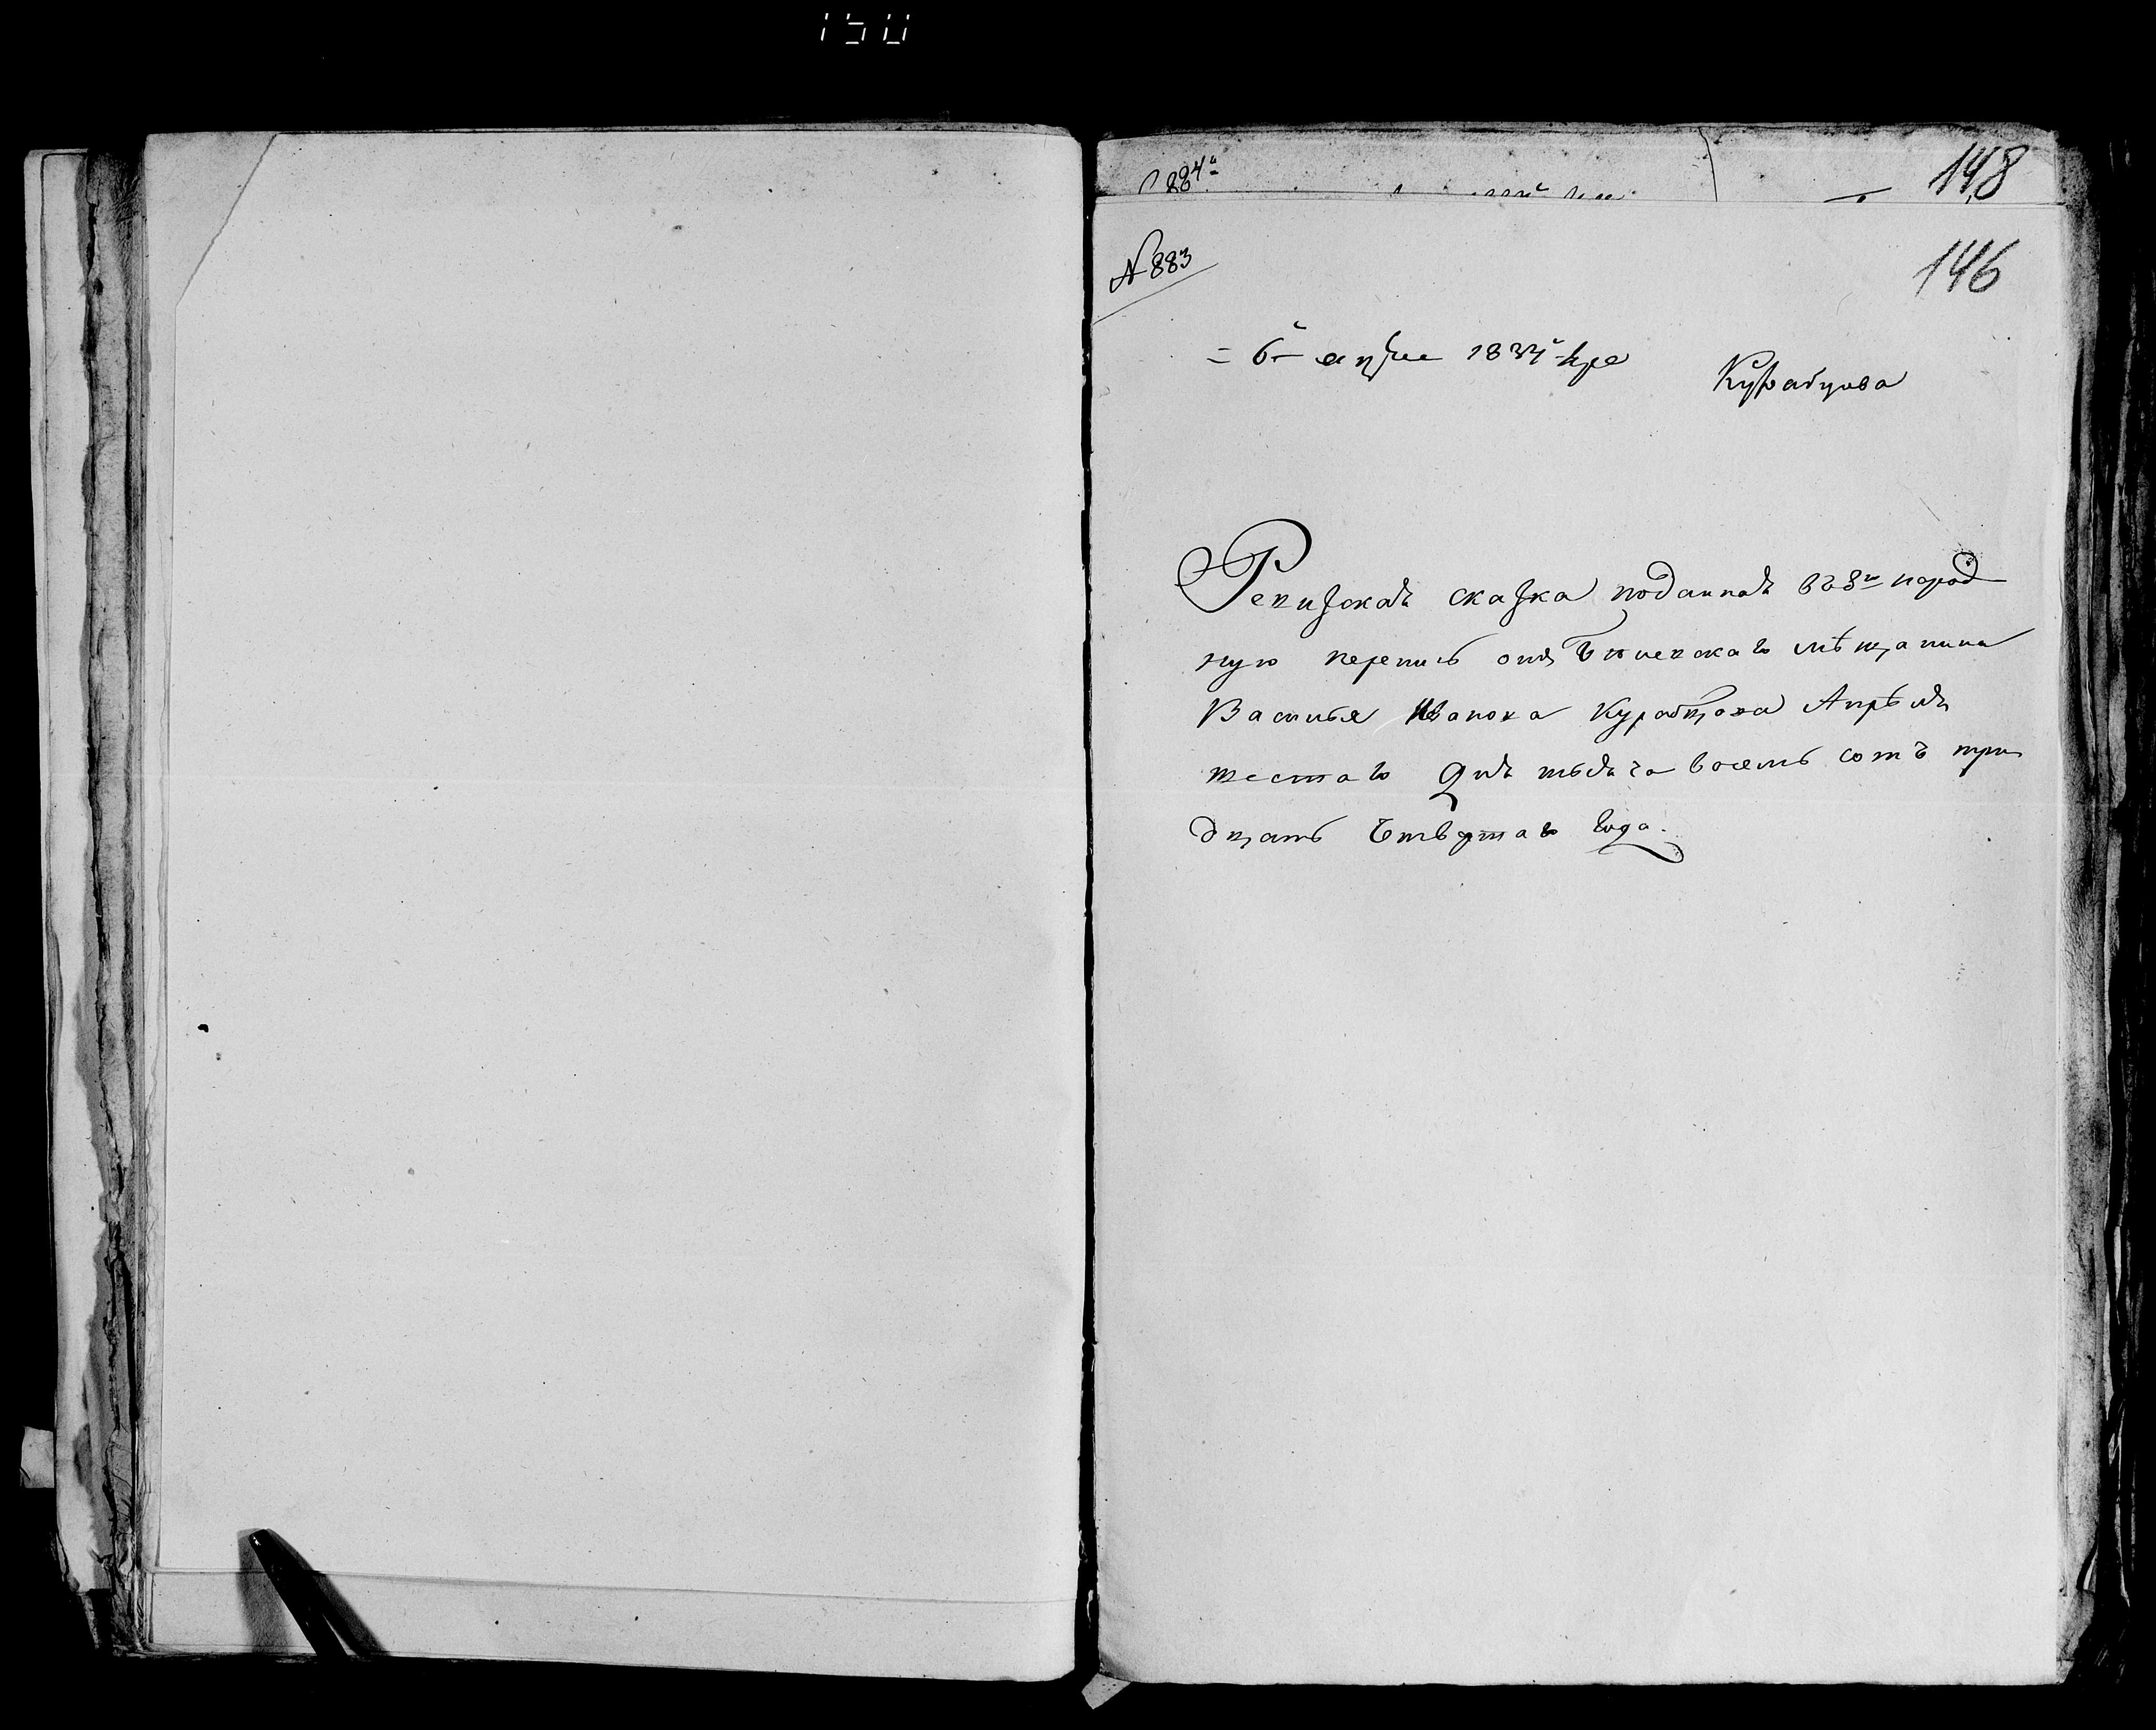 150
884
148
№ 883
146
= 6го апреля 1834го
Курапцова
Ревизская сказка поданная въ 8ю народ
ную перепись отъ мѣщанина
Василья Иванова Курапцова Апрѣля
шестаго дня тысяча восемь сотъ три
дцать Четвертаго Года.